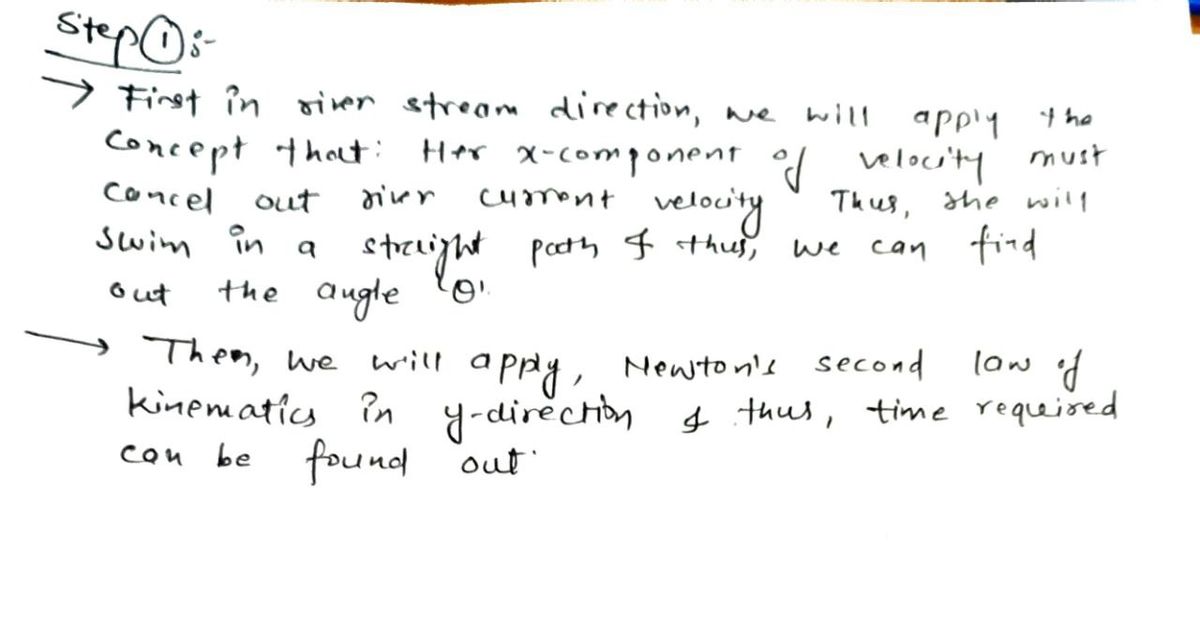 Step ① :-
→ First in river stream direction, we will apply the
concept that: Her x-component of velocity must
cancel out river current velocity Thus, she will
swim in a straight path & thus, we can find
out the angle 'θ'.
→ Then, we will apply, Newton's second law of
kinematics in y-direction & thus, time required
can be found out.